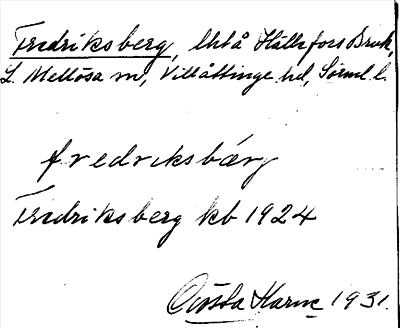 Fredriksberg, lht å Hälleforsbruk,
L. Mellösa sn, Villåttinge hd, Sörml. l.
fredriksbärj
Fredriksberg kb 1924
Gösta Karne 1931.